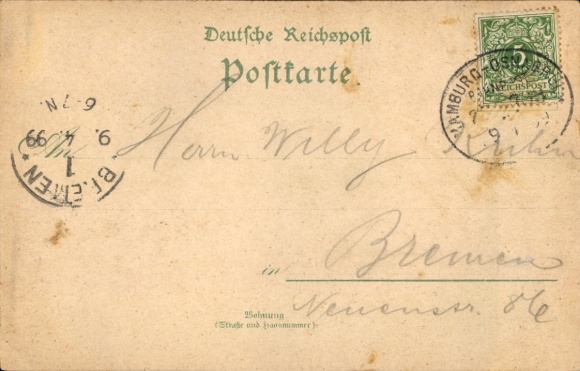 Deutsche Reichspost
Postkarte
5
REICHSPOST
HAMBURG-OSN
9
6-7N.
9. 4. 99
1
BREMEN
An Herrn Willy
in Bremen
Neuenstr. 86
Wohnung
(Straße und Hausnummer):